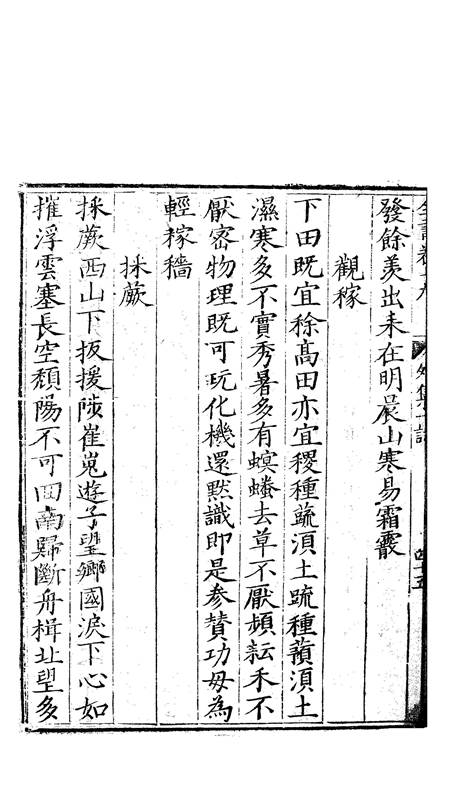 全書卷十九　外集一　詩　四十五
發餘羨出耒在明晨山寒易霜霰
觀稼
下田既宜稌高田亦宜稷種蔬湏土疏種蕷湏土
濕寒多不實秀暑多有螟螣去草不厭頻耘禾不
厭密物理既可玩化機還默識即是參贊功毋為
輕稼穡
採蕨
採蕨西山下扳援陟崔嵬遊子望鄉國淚下心如
摧浮雲塞長空頹陽不可囬南歸斷舟楫北望多